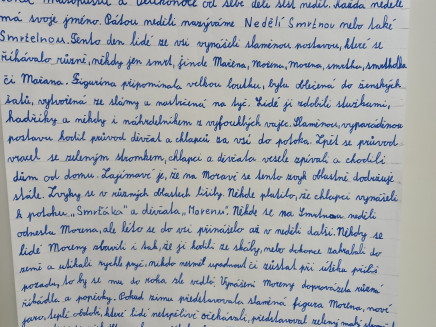 a Velikonoce od sebe dělí šest neděl. Každá neděle
má svoje jméno. Pátou neděli nazýváme Nedělí Smrtnou nebo také
Smrtelnou. Tento den lidé ze vsi vynášeli slaměnou postavu, které se
říkávalo různě, někdy jen smrt, jinde Mařena, morena, morana, smrtka, smrtholka
či Mařana. Figurína připomínala velkou loutku, byla oblečená do ženských
šatů, vytvořená ze slámy a nastrčená na tyč. Lidé ji zdobili stužkami,
hadříky a někdy i náhrdelníkem z vyfouklých vajec. Slaměnou, vyparáděnou
postavu hodil průvod děvčat a chlapců za vsí do potoka. Zpět se průvod
vracel se zeleným stromkem, chlapci a děvčata vesele zpívali a chodili
dům od domu. Zajímavé je, že na Moravě se tento zvyk vlastně dodržuje
stále. Zvyky se v různých oblastech lišily. Někde platilo, že chlapci vynášeli
k potoku "Smrťáka" a děvčata "Morenu". Někde se na Smrtnou neděli
odnesla Morena, ale léto se do vsi přinášelo až v neděli další. Někdy se
lidé Moreny zbavili i tak, že ji hodili ze skály, nebo dokonce zahrabali do
země a utíkali rychle pryč, nikdo nesměl upadnout či zůstat při útěku příliš
pozadu, to by se mu do roka zle vedlo. Vynášení Moreny doprovázela různá
říkadla a popěvky. Pokud zimu představovala slaměná figura Morena, nové
jaro, teplé období, které lidé netrpělivě očekávali, představoval zelený malý